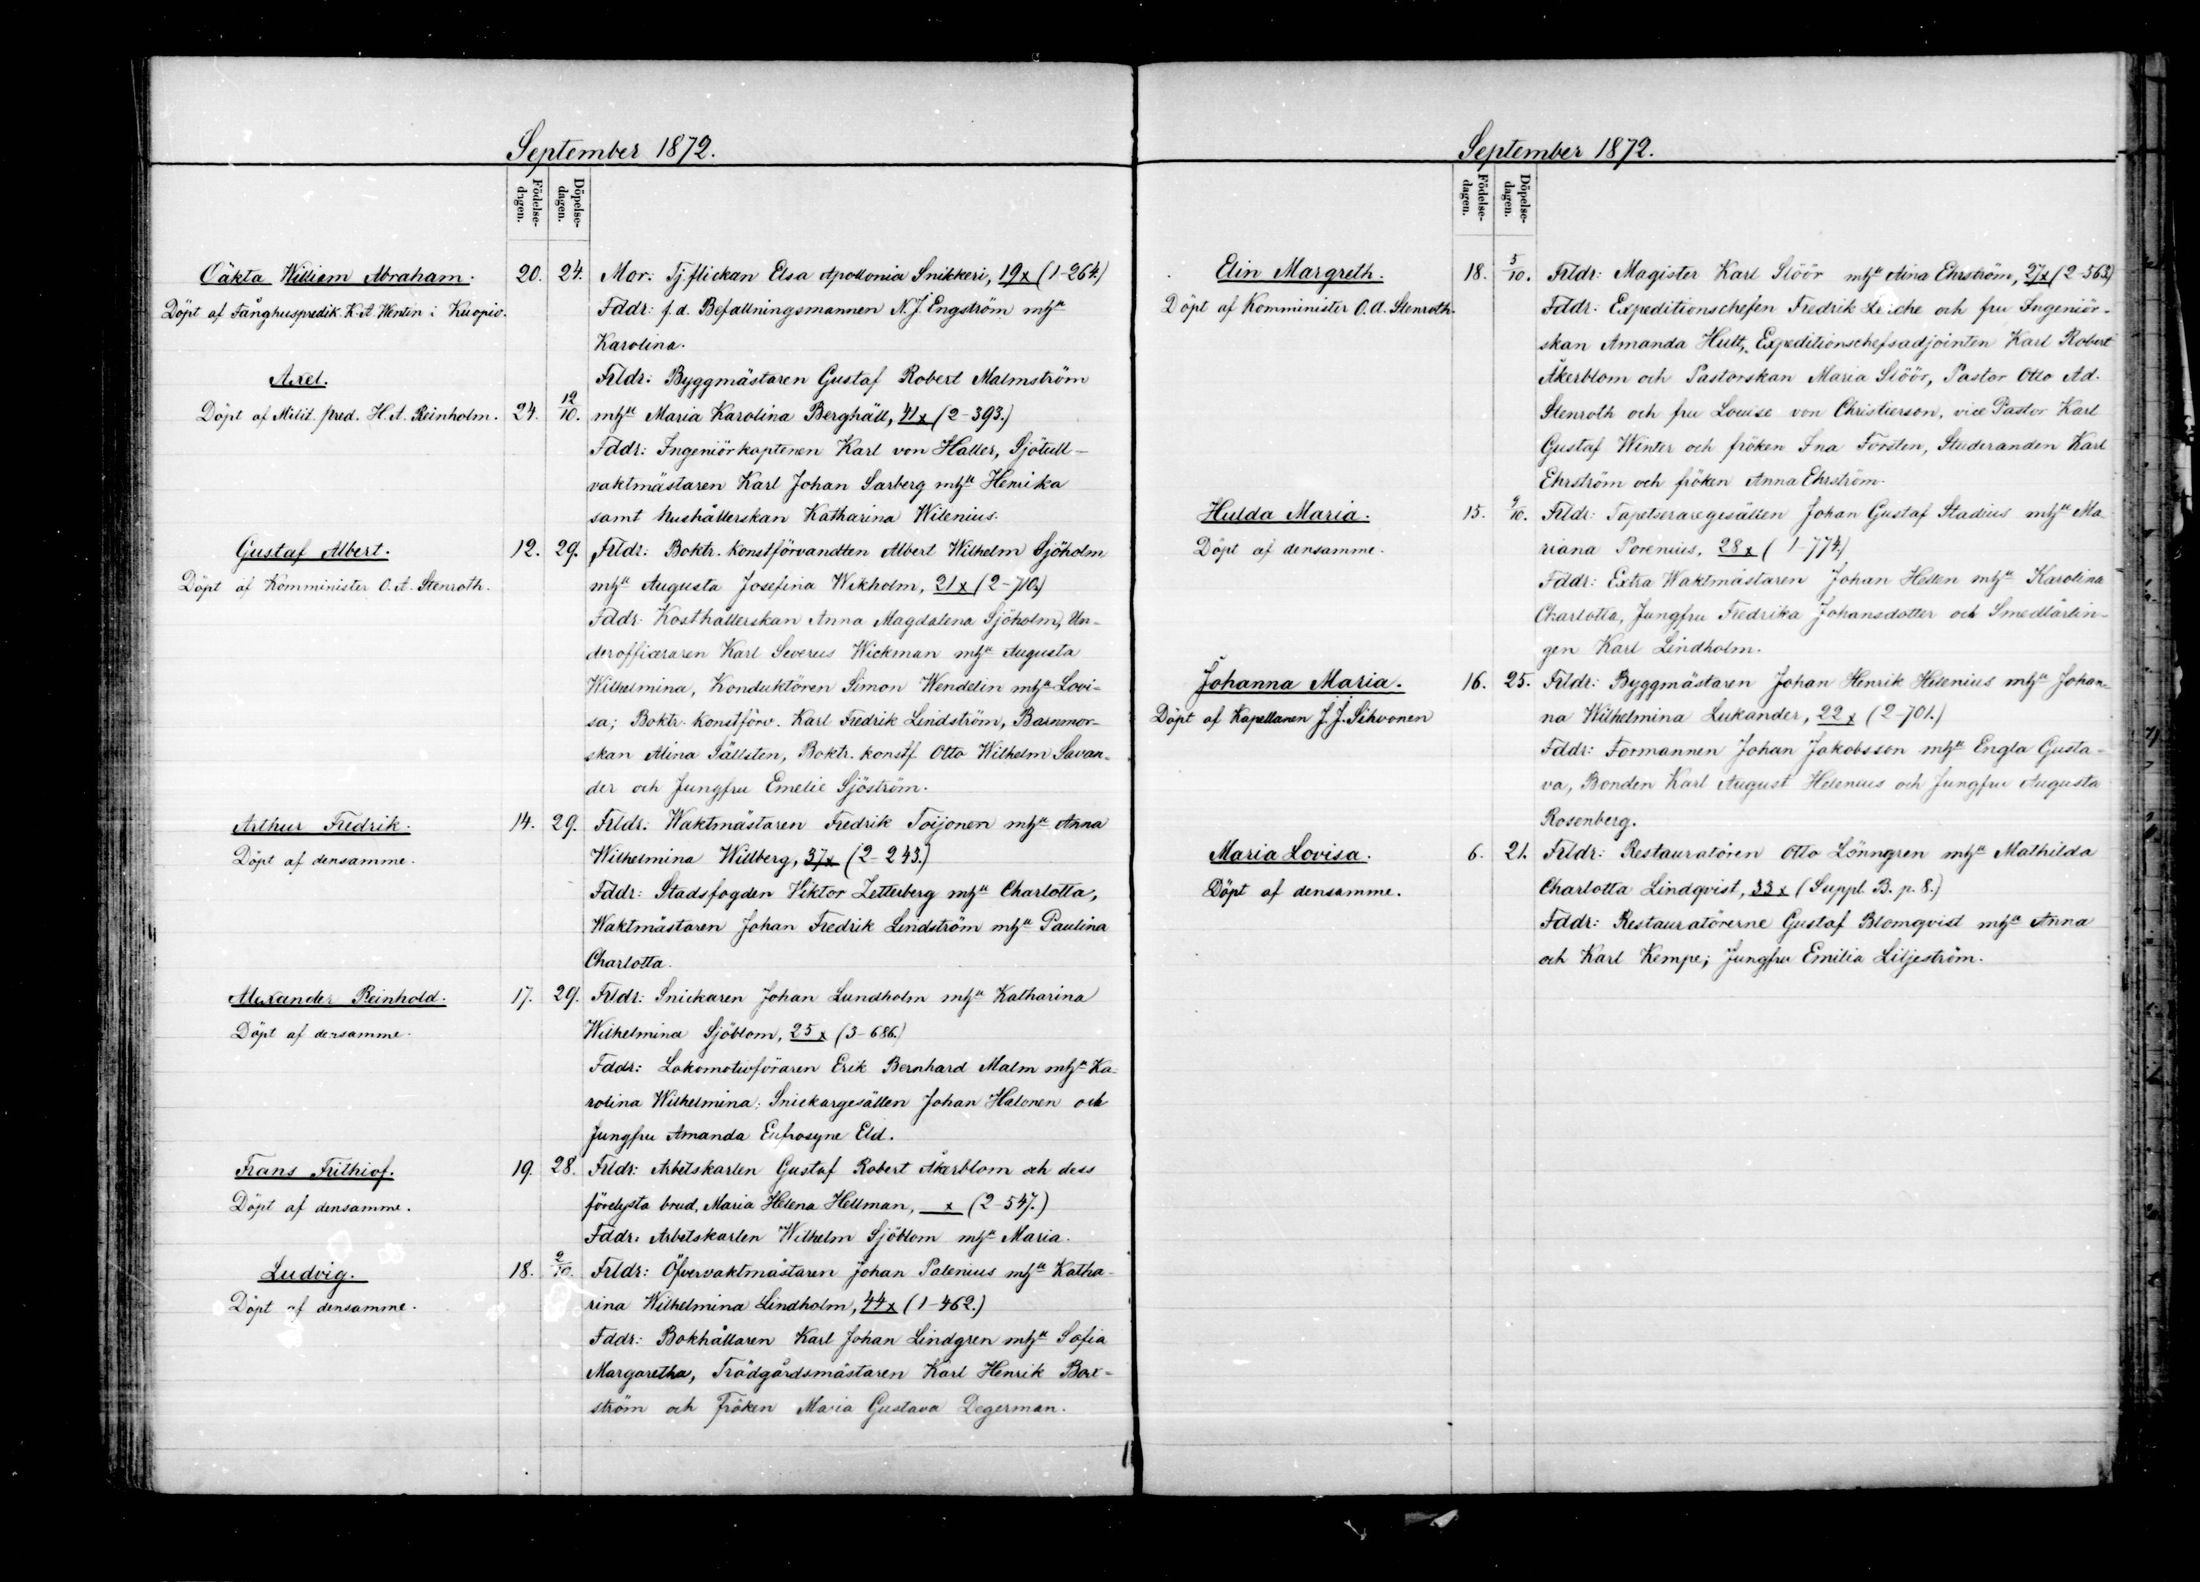 September 1872.
Födelse-
dagen.
Döpelse-
dagen.
Oäkta Williem Abraham. 20. 24. Mor: Tj. flickan Elsa Apollonia Snikkeri, 19x (1-264.)
Döpt af Fånghuspredik. K. A. Wenten i Kuopio. Fddr: f. d. Befallningsmannen N. J. Engström mhu
Karolina.
Axel. Frldr: Byggmästaren Gustaf Robert Malmström
Döpt af Milit. pred. H. A. Reinholm. 24. 12/10. mhu Maria Karolina Berghäll, 41x (2-393.)
Fddr: Ingeniörkaptenen Karl von Haller, Sjötull-
vaktmästaren Karl Johan Sarberg mhu Henrika
samt hushållerskan Katharina Wilenius.
Gustaf Albert. 12. 29. Frldr: Boktr. konstförvandten Albert Wilhelm Sjöholm
Döpt af Komminister O. A. Stenroth. mhu Augusta Josefina Wikholm, 21x (2-710.)
Fddr: Kosthållerskan Anna Magdalena Sjöholm, Un-
derofficeraren Karl Severus Wickman mhu Augusta
Wilhelmina, Konduktören Simon Wendelin mhu Lovi-
sa; Boktr. konstförv. Karl Fredrik Lindström, Barnmor-
skan Alina Sällsten, Boktr. konstf. Otto Wilhelm Savan-
der och Jungfru Emelie Sjöström.
Arthur Fredrik. 14. 29. Frldr: Waktmästaren Fredrik Toijonen mhu Anna
Döpt af densamme. Wilhelmina Willberg, 37x (2-243.)
Fddr: Stadsfogden Viktor Zetterberg mhu Charlotta,
Waktmästaren Johan Fredrik Lindström mhu Paulina
Charlotta.
Alexander Reinhold. 17. 29. Frldr: Snickaren Johan Lundholm mhu Katharina
Döpt af densamme. Wilhelmina Sjöblom, 25x (3-686.)
Fddr: Lokomotivföraren Erik Bernhard Malm mhu Ka-
rolina Wilhelmina; Snickargesällen Johan Halonen och
Jungfru Amanda Eufrosyne Eld.
Frans Frithiof. 19. 28. Frldr: Arbetskarlen Gustaf Robert Åkerblom och dess
Döpt af densamme. förelysta brud, Maria Helena Hellman, x (2-547.)
Fddr: Arbetskarlen Wilhelm Sjöblom mhu Maria.
Ludvig. 18. 2/10. Frldr: Öfvervaktmästaren Johan Palenius mhu Katha-
Döpt af densamme. rina Wilhelmina Lindholm, 44x (1-462.)
Fddr: Bokhållaren Karl Johan Lindgren mhu Sofia
Margaretha, Trädgårdsmästaren Karl Henrik Box-
ström och Fröken Maria Gustava Degerman.
September 1872.
Födelse-
dagen.
Döpelse-
dagen.
Elin Margreth. 18. 5/10. Frldr: Magister Karl Slöör mhu Aina Ehrström, 27x (2-563)
Döpt af Komminister O. A. Stenroth. Fddr: Expeditionschefen Fredrik och fru Ingeniör-
skan Amanda Hult, Expeditionschefsadjointen Karl Robert
Åkerblom och Pastorskan Maria Slöör, Pastor Otto Ad.
Stenroth och fru Louise von Christierson, vice Pastor Karl
Gustaf Winter och fröken Ina Forsten, Studeranden Karl
Ehrström och fröken Anna Ehrström.
Hulda Maria. 15. 9/10. Frldr: Tapetseraregesällen Johan Gustaf Stadius mhu Ma-
Döpt af densamme. riana Porenius, 28x (1-774.)
Fddr: Extra Waktmästaren Johan Hellen mhu Karolina
Charlotta, Jungfru Fredrika Johansdotter och Smedlärlin-
gen Karl Lindholm.
Johanna Maria. 16. 25. Frldr: Byggmästaren Johan Henrik Helenius mhu Johan-
Döpt af Kapellanen J. J. Sihvonen na Wilhelmina Lukander, 22x (2-701.)
Fddr: Formannen Johan Jakobsson mhu Engla Gusta-
va, Bonden Karl August Helenius och Jungfru Augusta
Rosenberg.
Maria Lovisa. 6. 21. Frldr: Restauratören Otto Lönngren mhu Mathilda
Döpt af densamme. Charlotta Lindqvist, 33x (Suppl. B. p. 8.)
Fddr: Restauratörerne Gustaf Blomqvist mhu Anna
och Karl Kempe; Jungfru Emilia Liljeström.